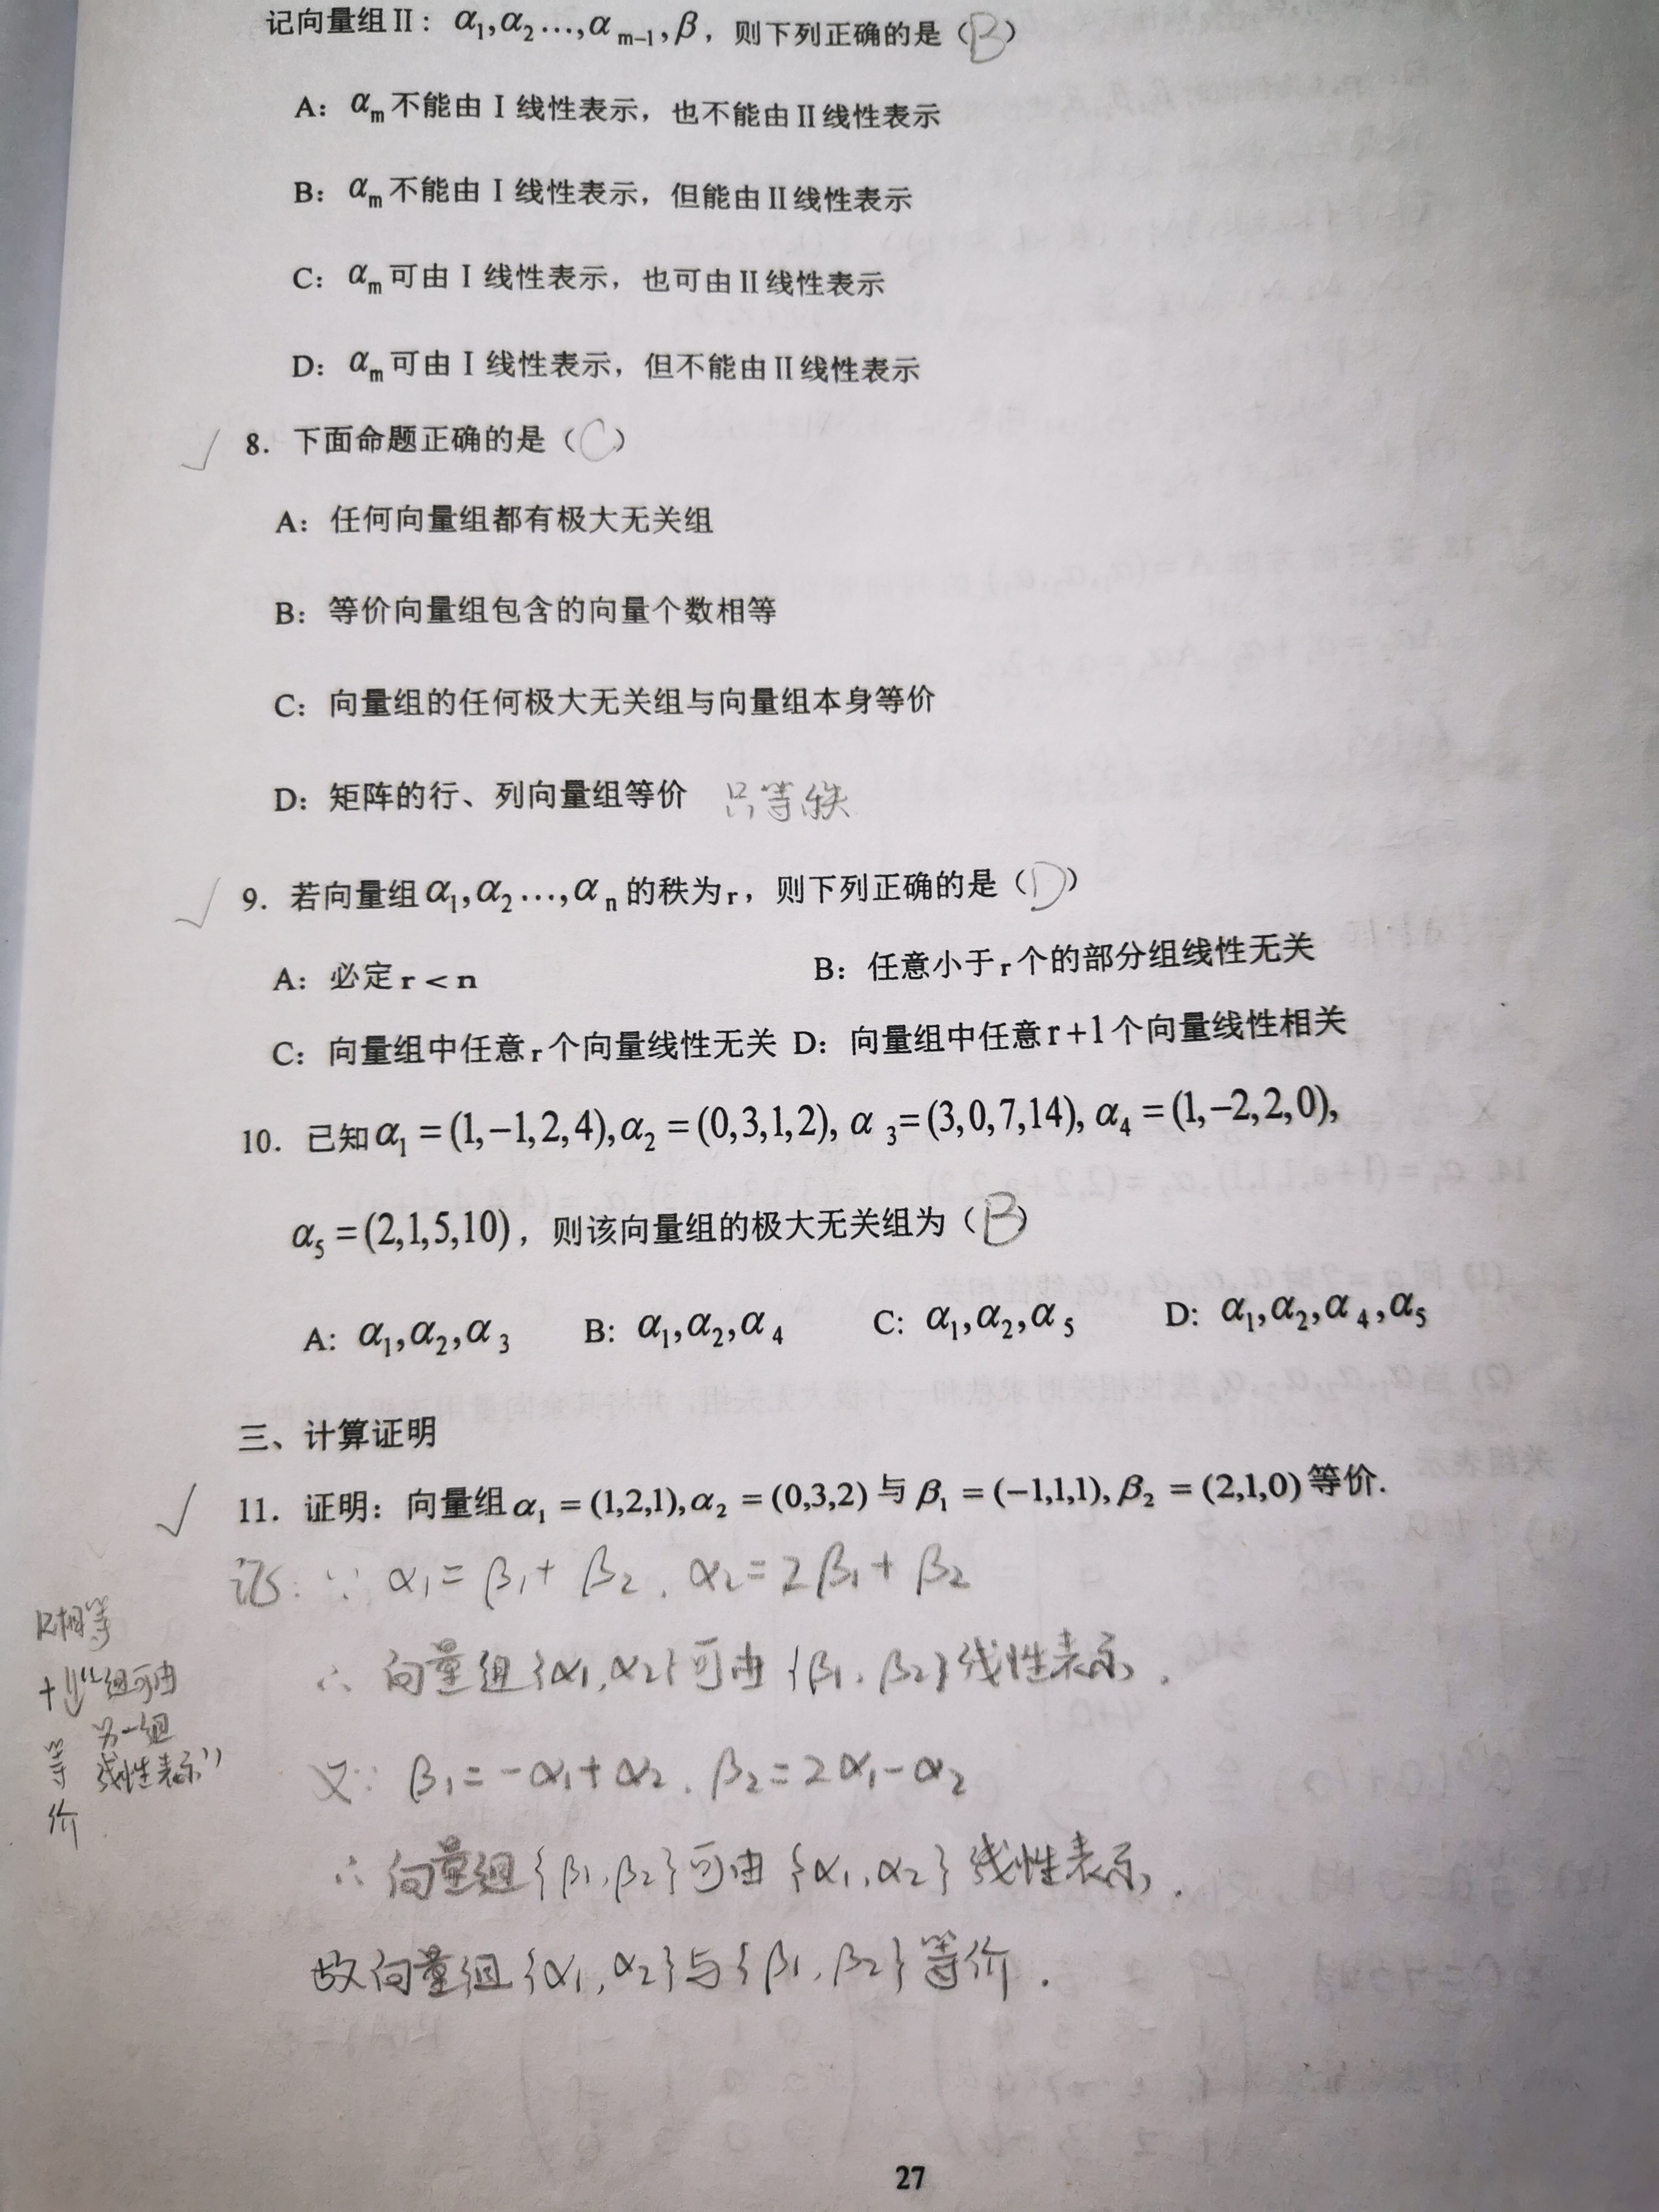 记向量组Ⅱ：α₁,α₂…,α m−1,β，则下列正确的是（B）
A：αm不能由Ⅰ线性表示，也不能由Ⅱ线性表示
B：αm不能由Ⅰ线性表示，但能由Ⅱ线性表示
C：αm可由Ⅰ线性表示，也可由Ⅱ线性表示
D：αm可由Ⅰ线性表示，但不能由Ⅱ线性表示
√ 8．下面命题正确的是（C）
A：任何向量组都有极大无关组
B：等价向量组包含的向量个数相等
C：向量组的任何极大无关组与向量组本身等价
D：矩阵的行、列向量组等价 只等秩
√ 9．若向量组α₁,α₂…,αn的秩为r，则下列正确的是（D）
A：必定r<n B：任意小于r个的部分组线性无关
C：向量组中任意r个向量线性无关 D：向量组中任意r+1个向量线性相关
10．已知α₁=(1,−1,2,4),α₂=(0,3,1,2),α₃=(3,0,7,14),α₄=(1,−2,2,0),
α₅=(2,1,5,10)，则该向量组的极大无关组为（B）
A: α₁,α₂,α₃ B: α₁,α₂,α₄ C: α₁,α₂,α₅ D: α₁,α₂,α₄,α₅
三、计算证明
√ 11．证明：向量组α₁=(1,2,1),α₂=(0,3,2)与β₁=(−1,1,1),β₂=(2,1,0)等价.
证: ∵ α₁=β₁+β₂, α₂=2β₁+β₂
∴ 向量组{α₁,α₂}可由{β₁,β₂}线性表示.
又∵ β₁=−α₁+α₂, β₂=2α₁−α₂
∴ 向量组{β₁,β₂}可由{α₁,α₂}线性表示.
故向量组{α₁,α₂}与{β₁,β₂}等价.
R相等
+ "组可由
另一组
线性表示"
等
价
27